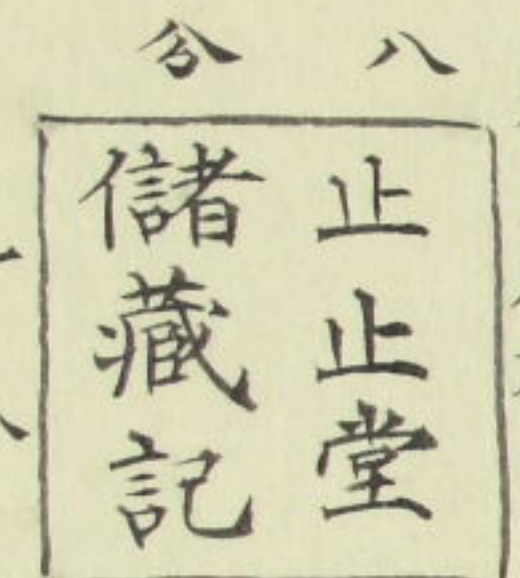 八分
止止堂
儲藏記